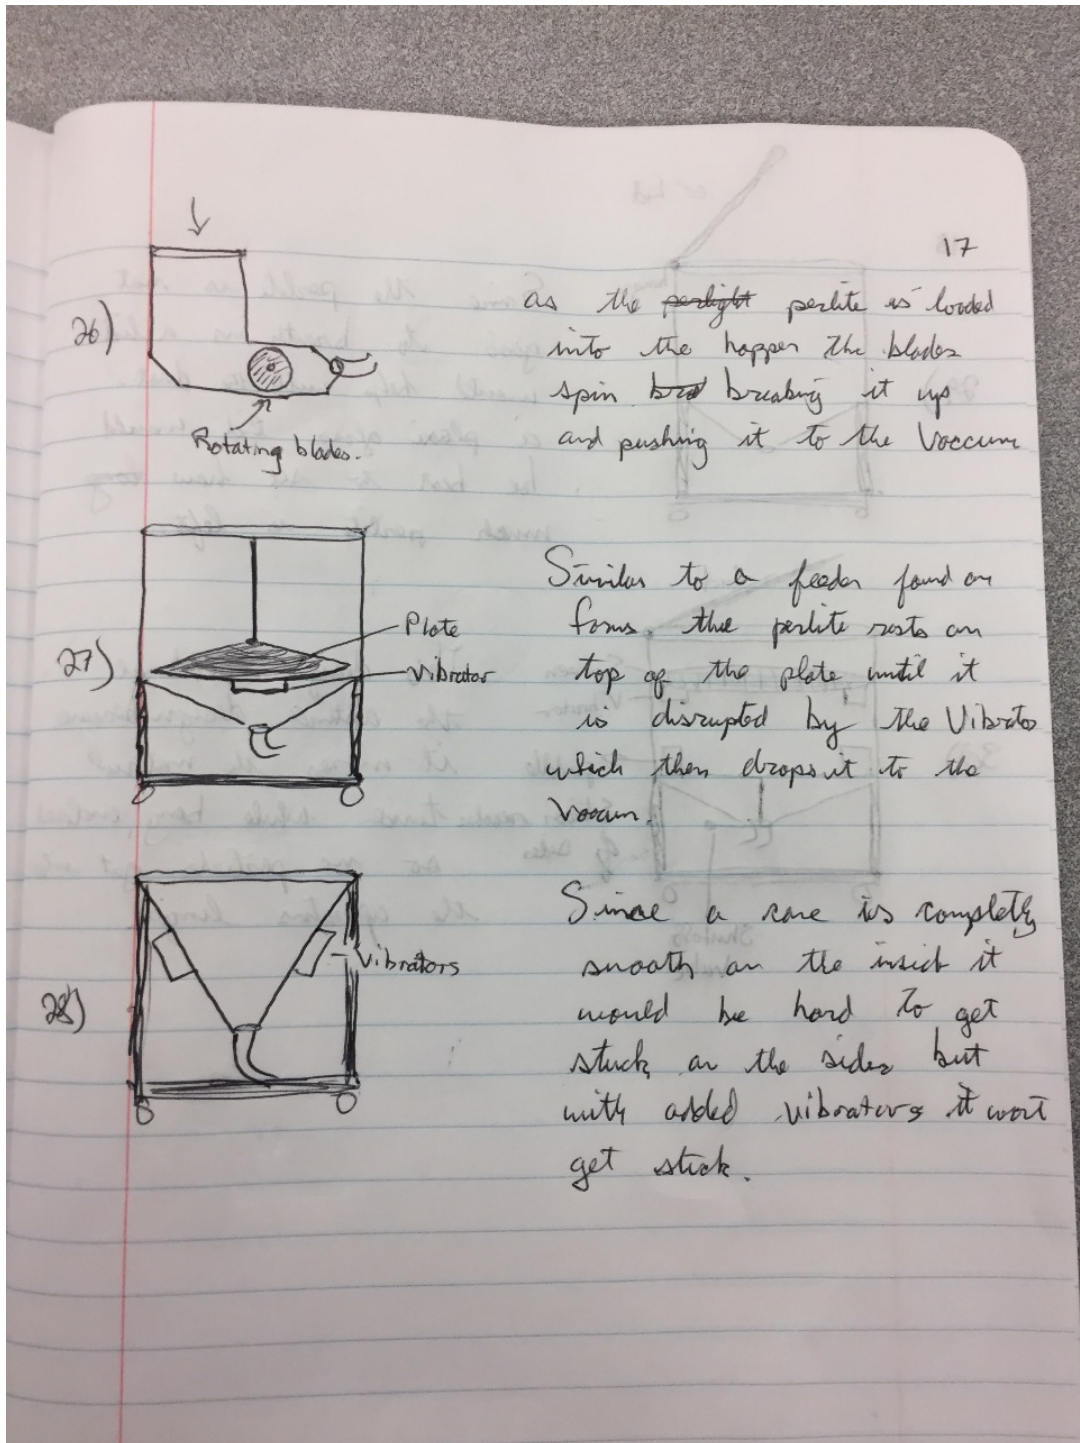 17
26)
Rotating blades.
as the perlight perlite is loaded
into the hopper the blades
spin breaking it up
and pushing it to the Vaccum
27)
Plate
Vibrator
Similar to a feeder found on
farms. the perlite rests on
top of the plate until it
is disrupted by the Vibrator
which then drops it to the
Vaccum.
28)
Vibrators
Since a cone is completly
smooth on the inside it
would be hard to get
stuck on the sides but
with added vibrators it wont
get stuck.